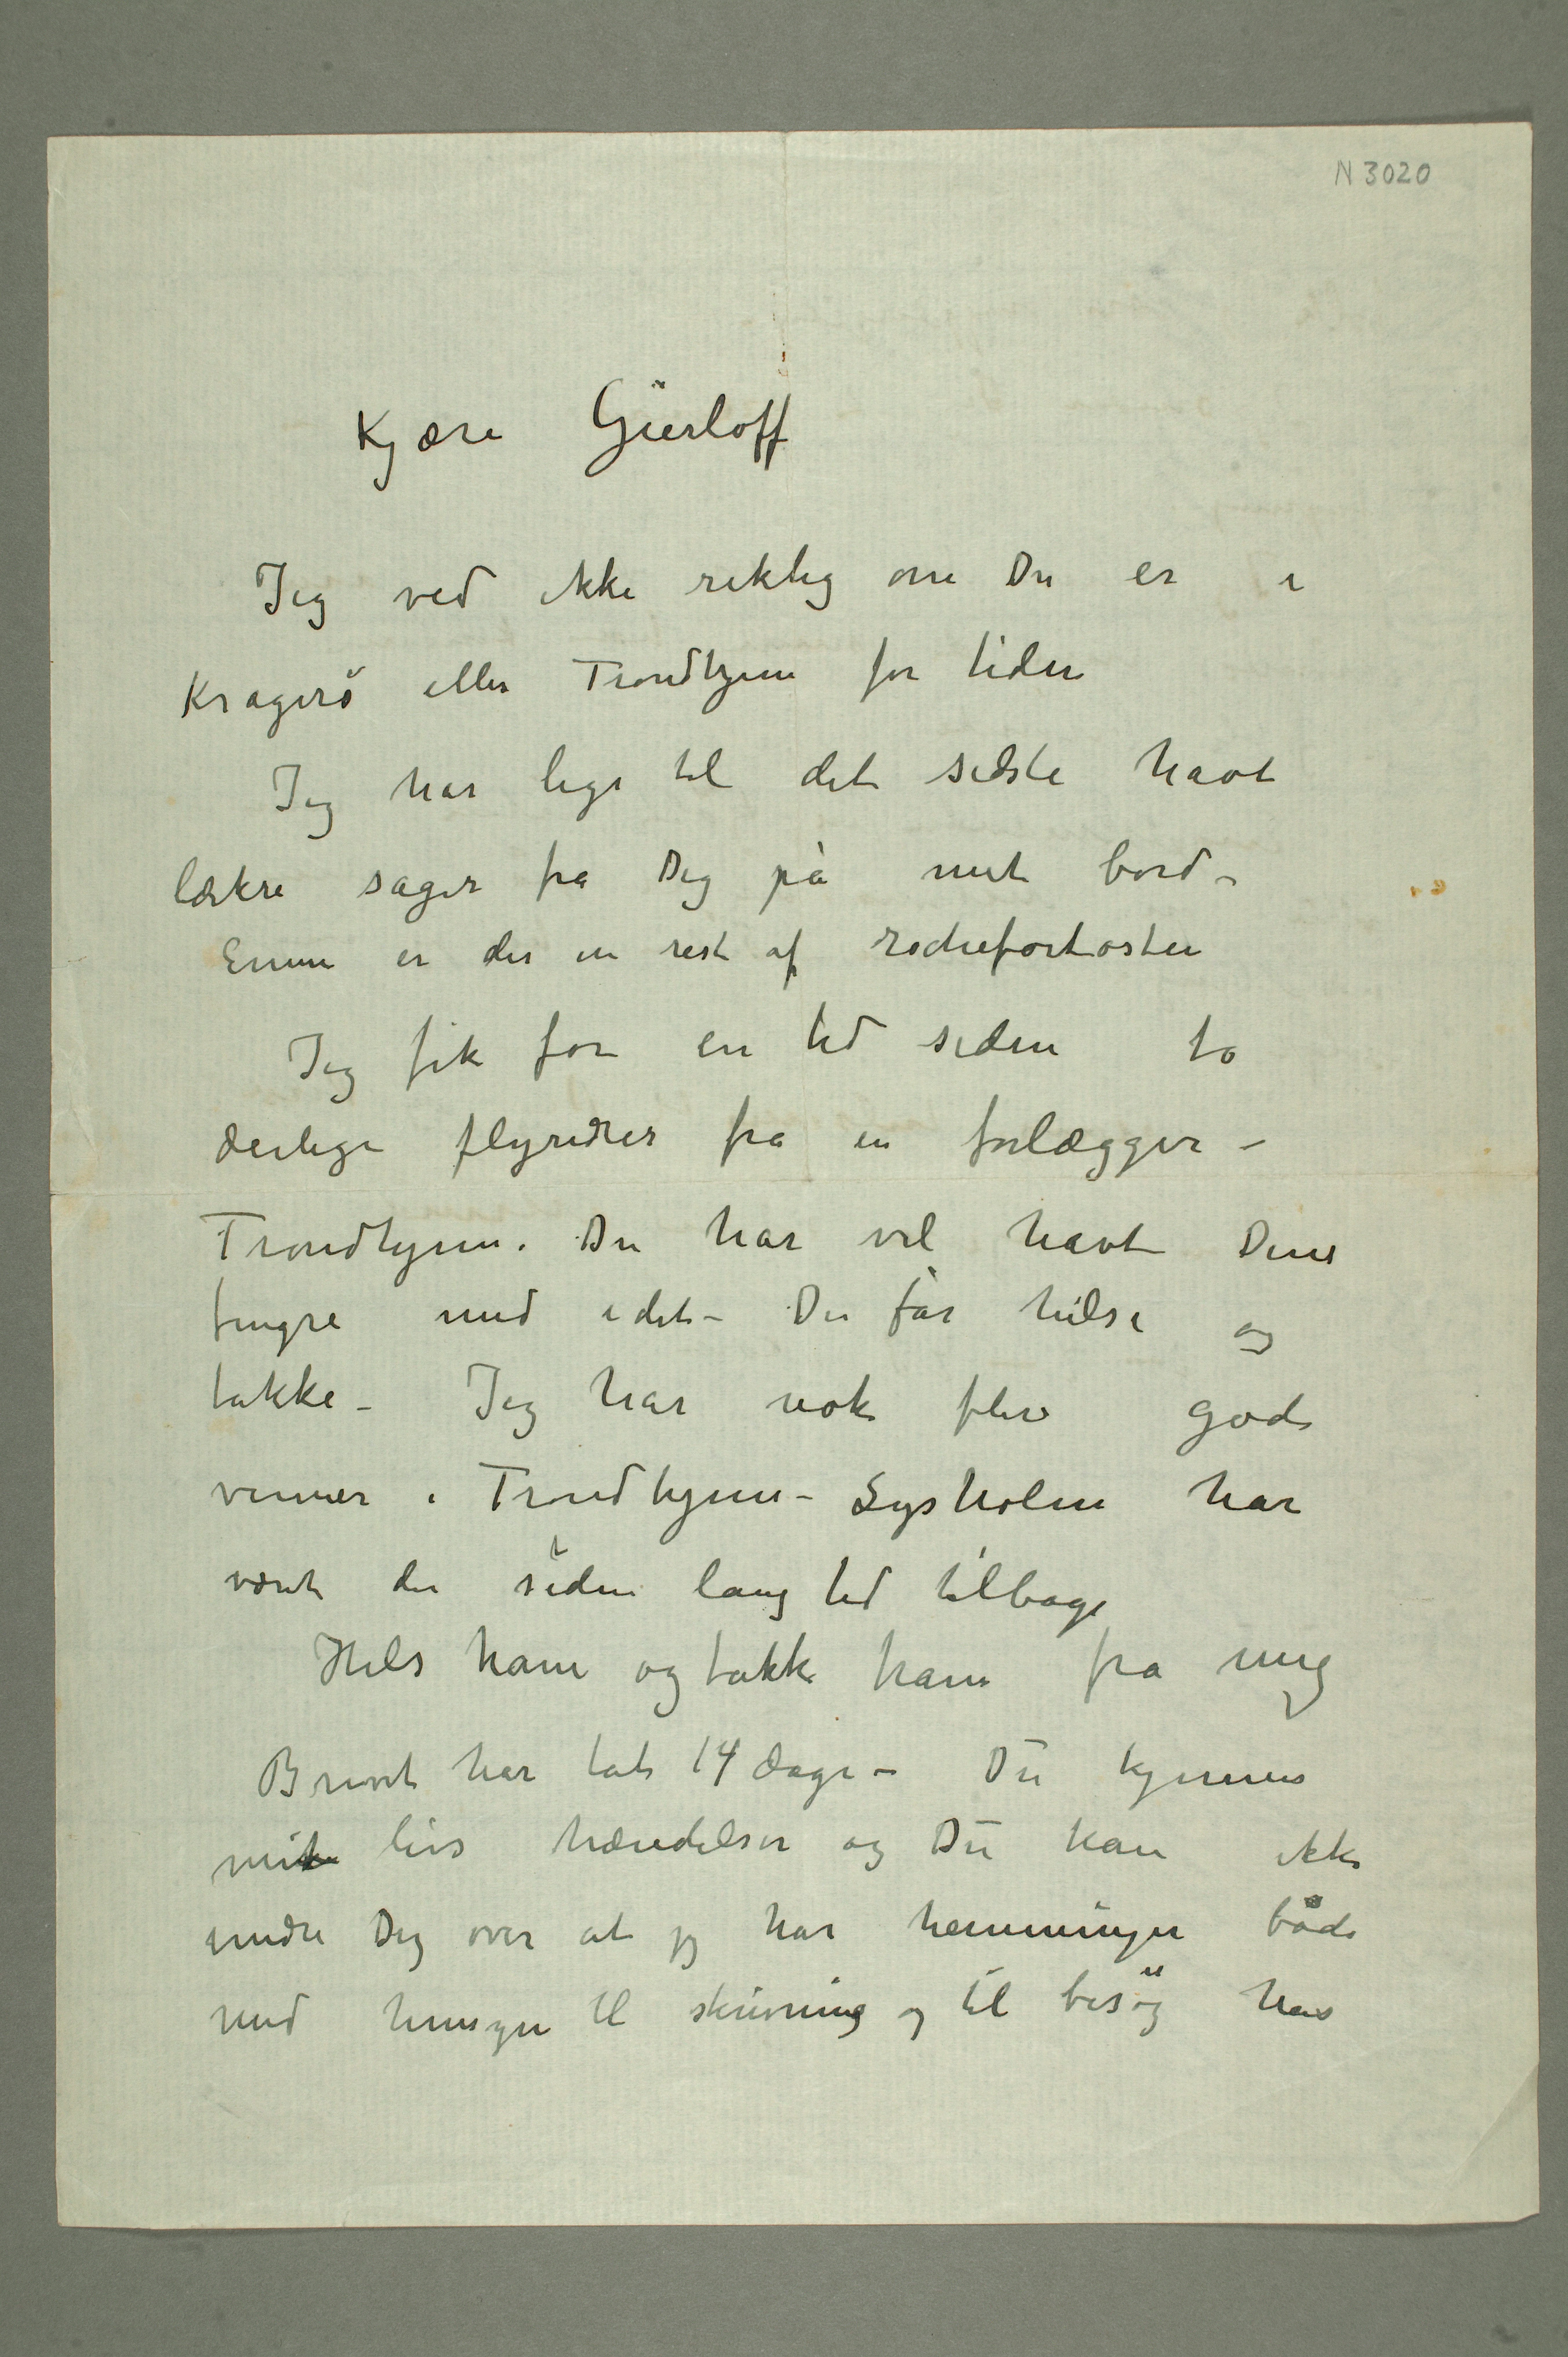 N 3020
Kjære Gierløff
Jeg ved ikke riktig om Du er i
Kragerö eller Trondhjem for tiden
Jeg har lige til det sidste havt
lækre sager fra Dig på mit bord –
Ennu er der en rest af rochefortosten
Jeg fik for en tid siden to
deilige flyndrer fra en forlægger –
Trondhjem. Du har vel havt Dine
fingre med i det – Du får hilse og
takke – Jeg har nok flere gode
venner i Trondhjem – Lysholm har
været der siden lang tid tilbage
Hils ham og takk ham fra mig
Brevet har tat 14 dage – Du kjenner
mit livs hændelser og Du kan ikke
undre Dig over at jeg har hemninger både
med hensyn til skrivning og til besög hos